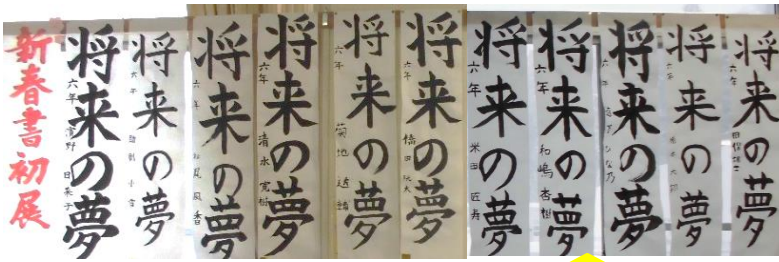 新春書初展
将来の夢
六年
将来の夢
六年
将来の夢
六年 風香
将来の夢
六年 清水
将来の夢
六年 菊地
将来の夢
六年
将来の夢
六年 米田
将来の夢
六年 和嶋 杏樹
将来の夢
ひな乃
将来の夢
六年
将来の夢
六年